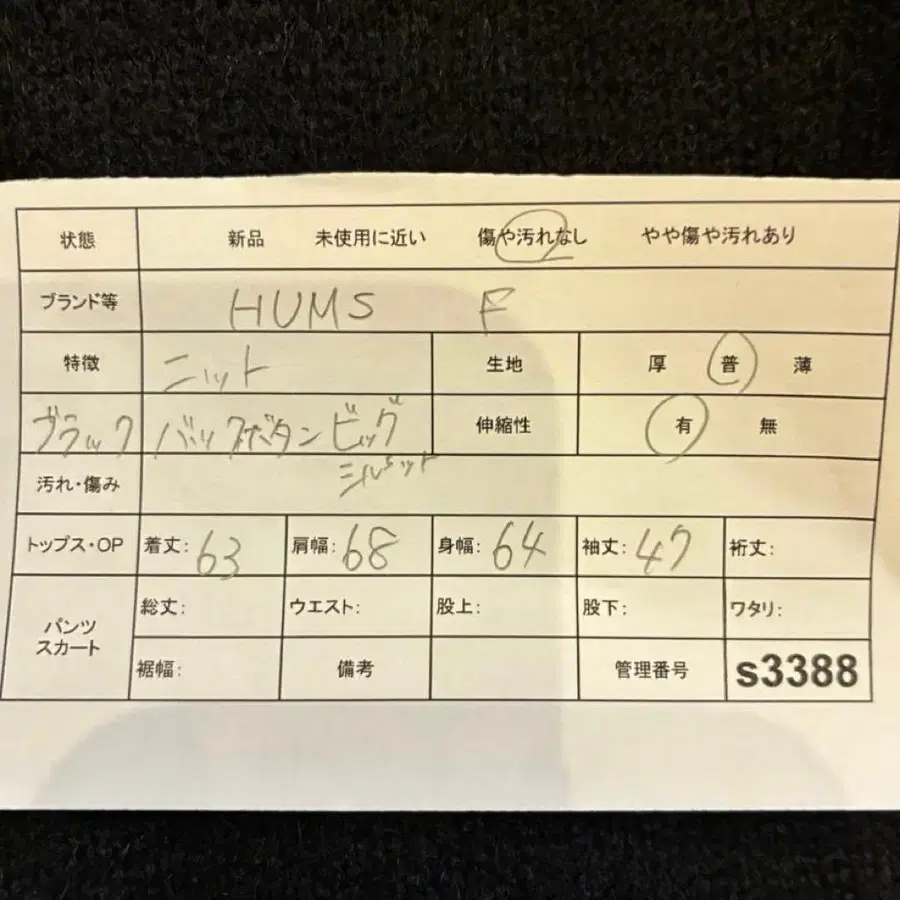 状態 新品 未使用に近い 傷や汚れなし やや傷や汚れあり
ブランド等 HUMS F
特徴 ニット 生地 厚 普 薄
ブラック バックボタン ビッグ 伸縮性 有 無
シルエット
汚れ・傷み
トップス・OP 着丈: 63 肩幅: 68 身幅: 64 袖丈: 47 裄丈:
パンツ スカート 総丈: ウエスト: 股上: 股下: ワタリ:
裾幅: 備考 管理番号 s3388